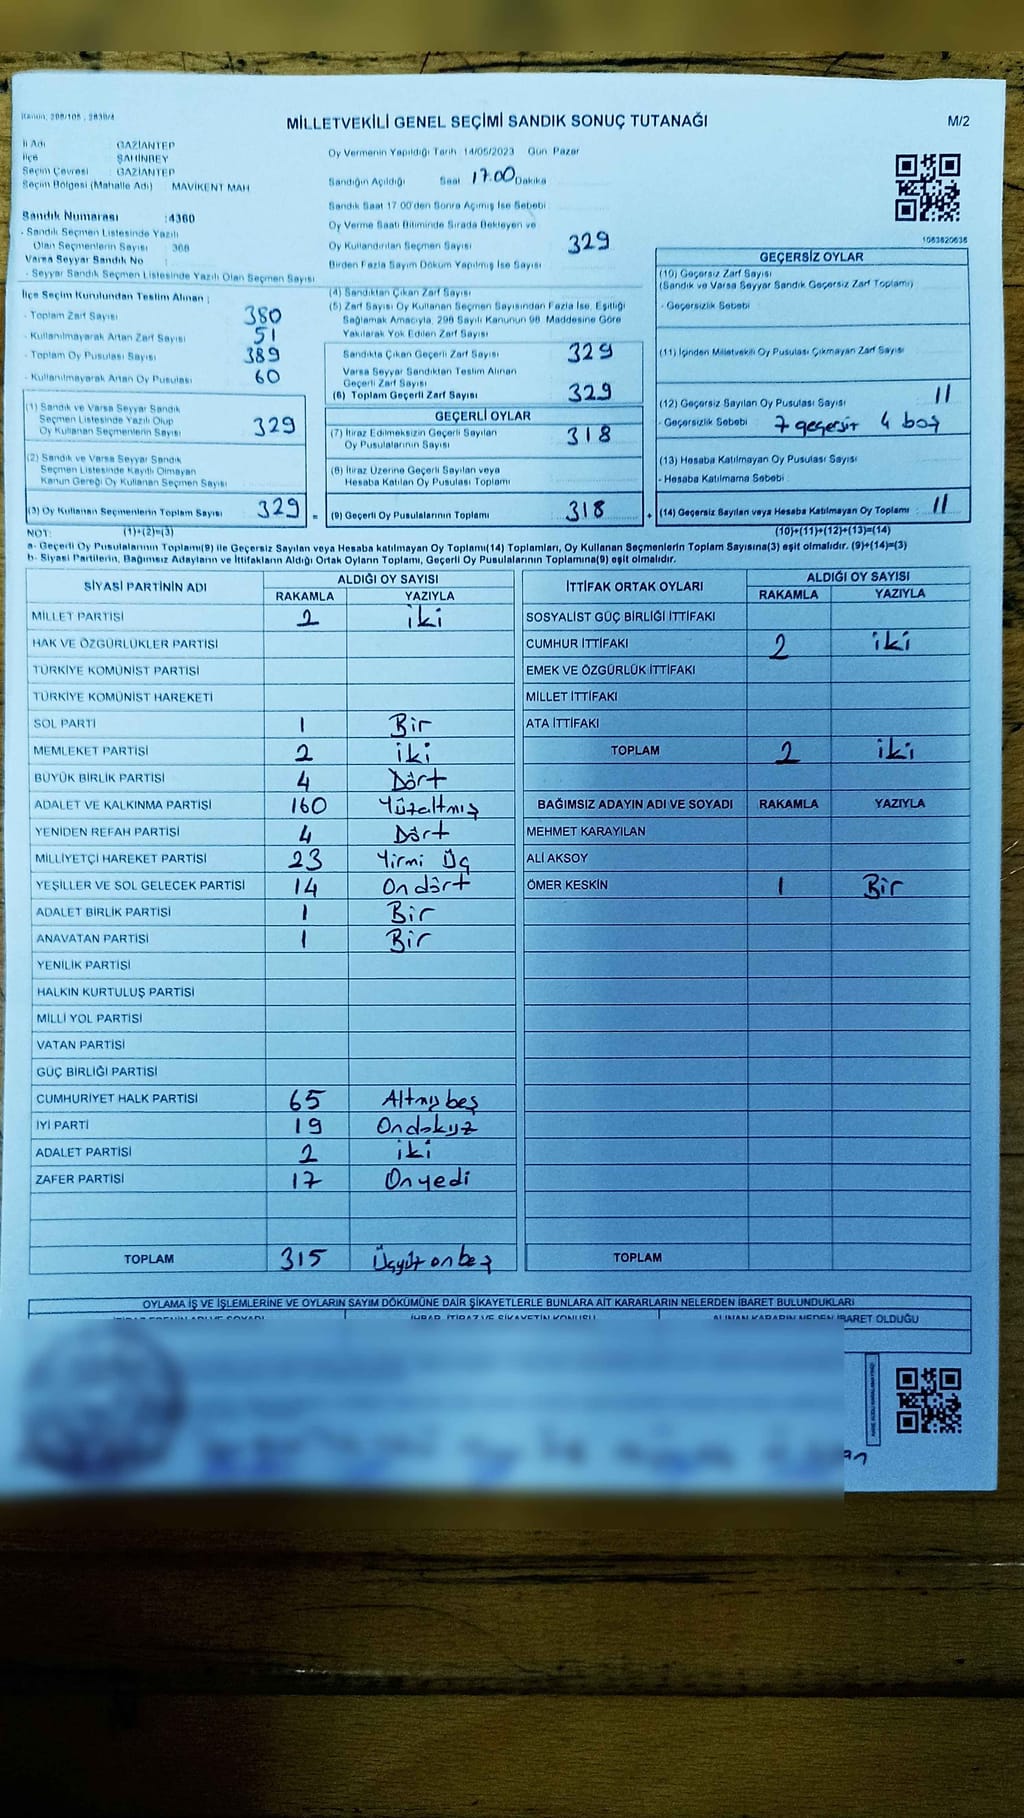 Kanun, 298/105 , 2839/4
MİLLETVEKİLİ GENEL SEÇİMİ SANDIK SONUÇ TUTANAĞI
M/2
İl Adı : GAZİANTEP
İlçe : ŞAHİNBEY
Seçim Çevresi : GAZİANTEP
Seçim Bölgesi (Mahalle Adı) : MAVİKENT MAH
Sandık Numarası :4360
- Sandık Seçmen Listesinde Yazılı
Olan Seçmenlerin Sayısı : 368
Varsa Seyyar Sandık No :
- Seyyar Sandık Seçmen Listesinde Yazılı Olan Seçmen Sayısı
Oy Vermenin Yapıldığı Tarih :14/05/2023 Gün: Pazar
Sandığın Açıldığı Saat 17.00 Dakika
Sandık Saat 17.00'den Sonra Açımış İse Sebebi
Oy Verme Saati Bitiminde Sırada Bekleyen ve
Oy Kullandırılan Seçmen Sayısı 329
Birden Fazla Sayım Döküm Yapılmış İse Sayısı
1063820636
İlçe Seçim Kurulundan Teslim Alınan ;
- Toplam Zarf Sayısı 380
- Kullanılmayarak Artan Zarf Sayısı 51
- Toplam Oy Pusulası Sayısı 389
- Kullanılmayarak Artan Oy Pusulası 60
(1) Sandık ve Varsa Seyyar Sandık
Seçmen Listesinde Yazılı Olup
Oy Kullanan Seçmenlerin Sayısı 329
(2) Sandık ve Varsa Seyyar Sandık
Seçmen Listesinde Kayıtlı Olmayan
Kanun Gereği Oy Kullanan Seçmen Sayısı
(3) Oy Kullanan Seçmenlerin Toplam Sayısı 329 =
(4) Sandıktan Çıkan Zarf Sayısı
(5) Zarf Sayısı Oy Kullanan Seçmen Sayısından Fazla İse, Eşitliği
Sağlamak Amacıyla, 298 Sayılı Kanunun 98. Maddesine Göre
Yakılarak Yok Edilen Zarf Sayısı
Sandıkta Çıkan Geçerli Zarf Sayısı 329
Varsa Seyyar Sandıktan Teslim Alınan
Geçerli Zarf Sayısı
(6) Toplam Geçerli Zarf Sayısı 329
GEÇERLİ OYLAR
(7) İtiraz Edilmeksizin Geçerli Sayılan
Oy Pusulalarının Sayısı 318
(8) İtiraz Üzerine Geçerli Sayılan veya
Hesaba Katılan Oy Pusulası Toplamı
(9) Geçerli Oy Pusulalarının Toplamı 318 +
GEÇERSİZ OYLAR
(10) Geçersiz Zarf Sayısı
(Sandık ve Varsa Seyyar Sandık Geçersiz Zarf Toplamı)
- Geçersizlik Sebebi
(11) İçinden Milletvekili Oy Pusulası Çıkmayan Zarf Sayısı
(12) Geçersiz Sayılan Oy Pusulası Sayısı 11
- Geçersizlik Sebebi : 7 geçersiz 4 boş
(13) Hesaba Katılmayan Oy Pusulası Sayısı
- Hesaba Katılmama Sebebi :
(14) Geçersiz Sayılan veya Hesaba Katılmayan Oy Toplamı : 11
NOT: (1)+(2)=(3) (10)+(11)+(12)+(13)=(14)
a- Geçerli Oy Pusulalarının Toplamı(9) ile Geçersiz Sayılan veya Hesaba katılmayan Oy Toplamı(14) Toplamları, Oy Kullanan Seçmenlerin Toplam Sayısına(3) eşit olmalıdır. (9)+(14)=(3)
b- Siyasi Partilerin, Bağımsız Adayların ve İttifakların Aldığı Ortak Oyların Toplamı, Geçerli Oy Pusulalarının Toplamına(9) eşit olmalıdır.
SİYASİ PARTİNİN ADI ALDIĞI OY SAYISI
RAKAMLA YAZIYLA
MİLLET PARTİSİ 2 iki
HAK VE ÖZGÜRLÜKLER PARTİSİ
TÜRKİYE KOMÜNİST PARTİSİ
TÜRKİYE KOMÜNİST HAREKETİ
SOL PARTİ 1 Bir
MEMLEKET PARTİSİ 2 iki
BÜYÜK BİRLİK PARTİSİ 4 Dört
ADALET VE KALKINMA PARTİSİ 160 Yüzaltmış
YENİDEN REFAH PARTİSİ 4 Dört
MİLLİYETÇİ HAREKET PARTİSİ 23 Yirmi Üç
YEŞİLLER VE SOL GELECEK PARTİSİ 14 On dört
ADALET BİRLİK PARTİSİ 1 Bir
ANAVATAN PARTİSİ 1 Bir
YENİLİK PARTİSİ
HALKIN KURTULUŞ PARTİSİ
MİLLİ YOL PARTİSİ
VATAN PARTİSİ
GÜÇ BİRLİĞİ PARTİSİ
CUMHURİYET HALK PARTİSİ 65 Altmışbeş
İYİ PARTİ 19 Ondokuz
ADALET PARTİSİ 2 iki
ZAFER PARTİSİ 17 Onyedi
TOPLAM 315 Üçyüz on beş
İTTİFAK ORTAK OYLARI ALDIĞI OY SAYISI
RAKAMLA YAZIYLA
SOSYALİST GÜÇ BİRLİĞİ İTTİFAKI
CUMHUR İTTİFAKI 2 iki
EMEK VE ÖZGÜRLÜK İTTİFAKI
MİLLET İTTİFAKI
ATA İTTİFAKI
TOPLAM 2 iki
BAĞIMSIZ ADAYIN ADI VE SOYADI RAKAMLA YAZIYLA
MEHMET KARAYILAN
ALİ AKSOY
ÖMER KESKİN 1 Bir
TOPLAM
OYLAMA İŞ VE İŞLEMLERİNE VE OYLARIN SAYIM DÖKÜMÜNE DAİR ŞİKAYETLERLE BUNLARA AİT KARARLARIN NELERDEN İBARET BULUNDUKLARI
İHBAR, İTİRAZ VE ŞİKAYETİN KONUSU ALINAN KARARIN NEDEN İBARET OLDUĞU